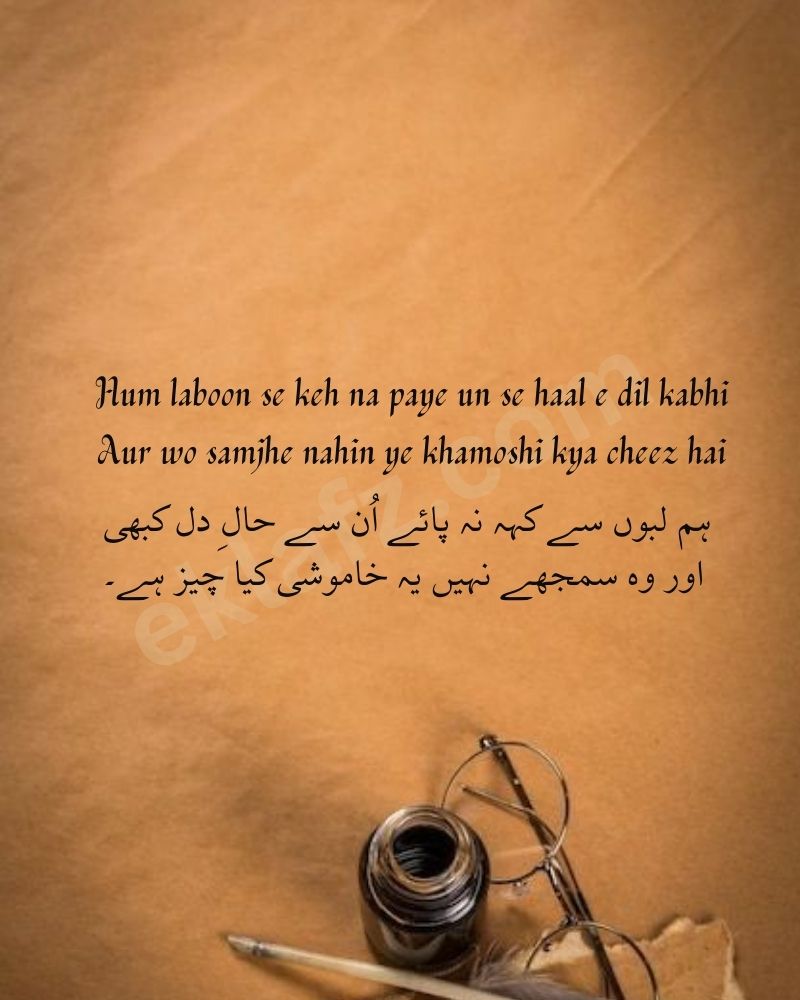 Hum laboon se keh na paye un se haal e dil kabhi
Aur wo samjhe nahin ye khamoshi kya cheez hai
ہم لبوں سے کہہ نہ پائے اُن سے حالِ دل کبھی
اور وہ سمجھے نہیں یہ خاموشی کیا چیز ہے۔
eklafz.com